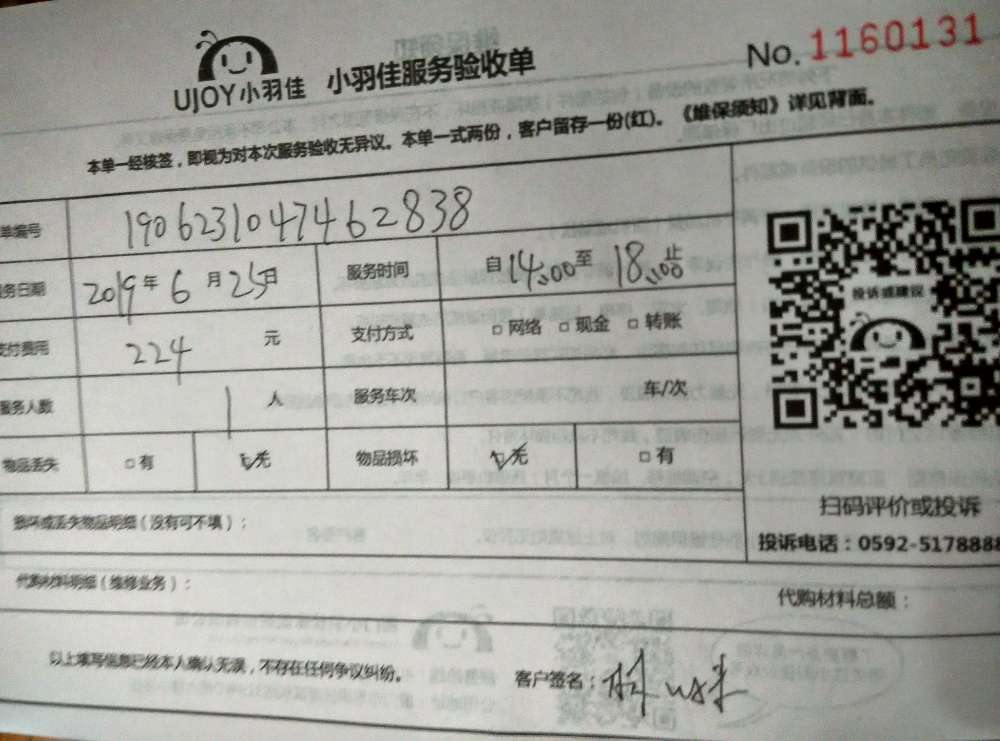 UJOY小羽佳 小羽佳服务验收单 No. 1160131
本单一经核签，即视为对本次服务验收无异议。本单一式两份，客户留存一份(红)。《维保须知》详见背面。
单编号 1906231047462838
务日期 2019年6月25日 服务时间 自14:00至18:00止
支付费用 224 元 支付方式 □网络 □现金 □转账
服务人数 1 人 服务车次 车/次
物品丢失 □有 ☑无 物品损坏 ☑无 □有
投诉或建议
扫码评价或投诉
投诉电话：0592-5178888
损坏或丢失物品明细（没有可不填）：
代购材料明细（维修业务）： 代购材料总额：
以上填写信息已经本人确认无误，不存在任何争议纠纷。 客户签名：